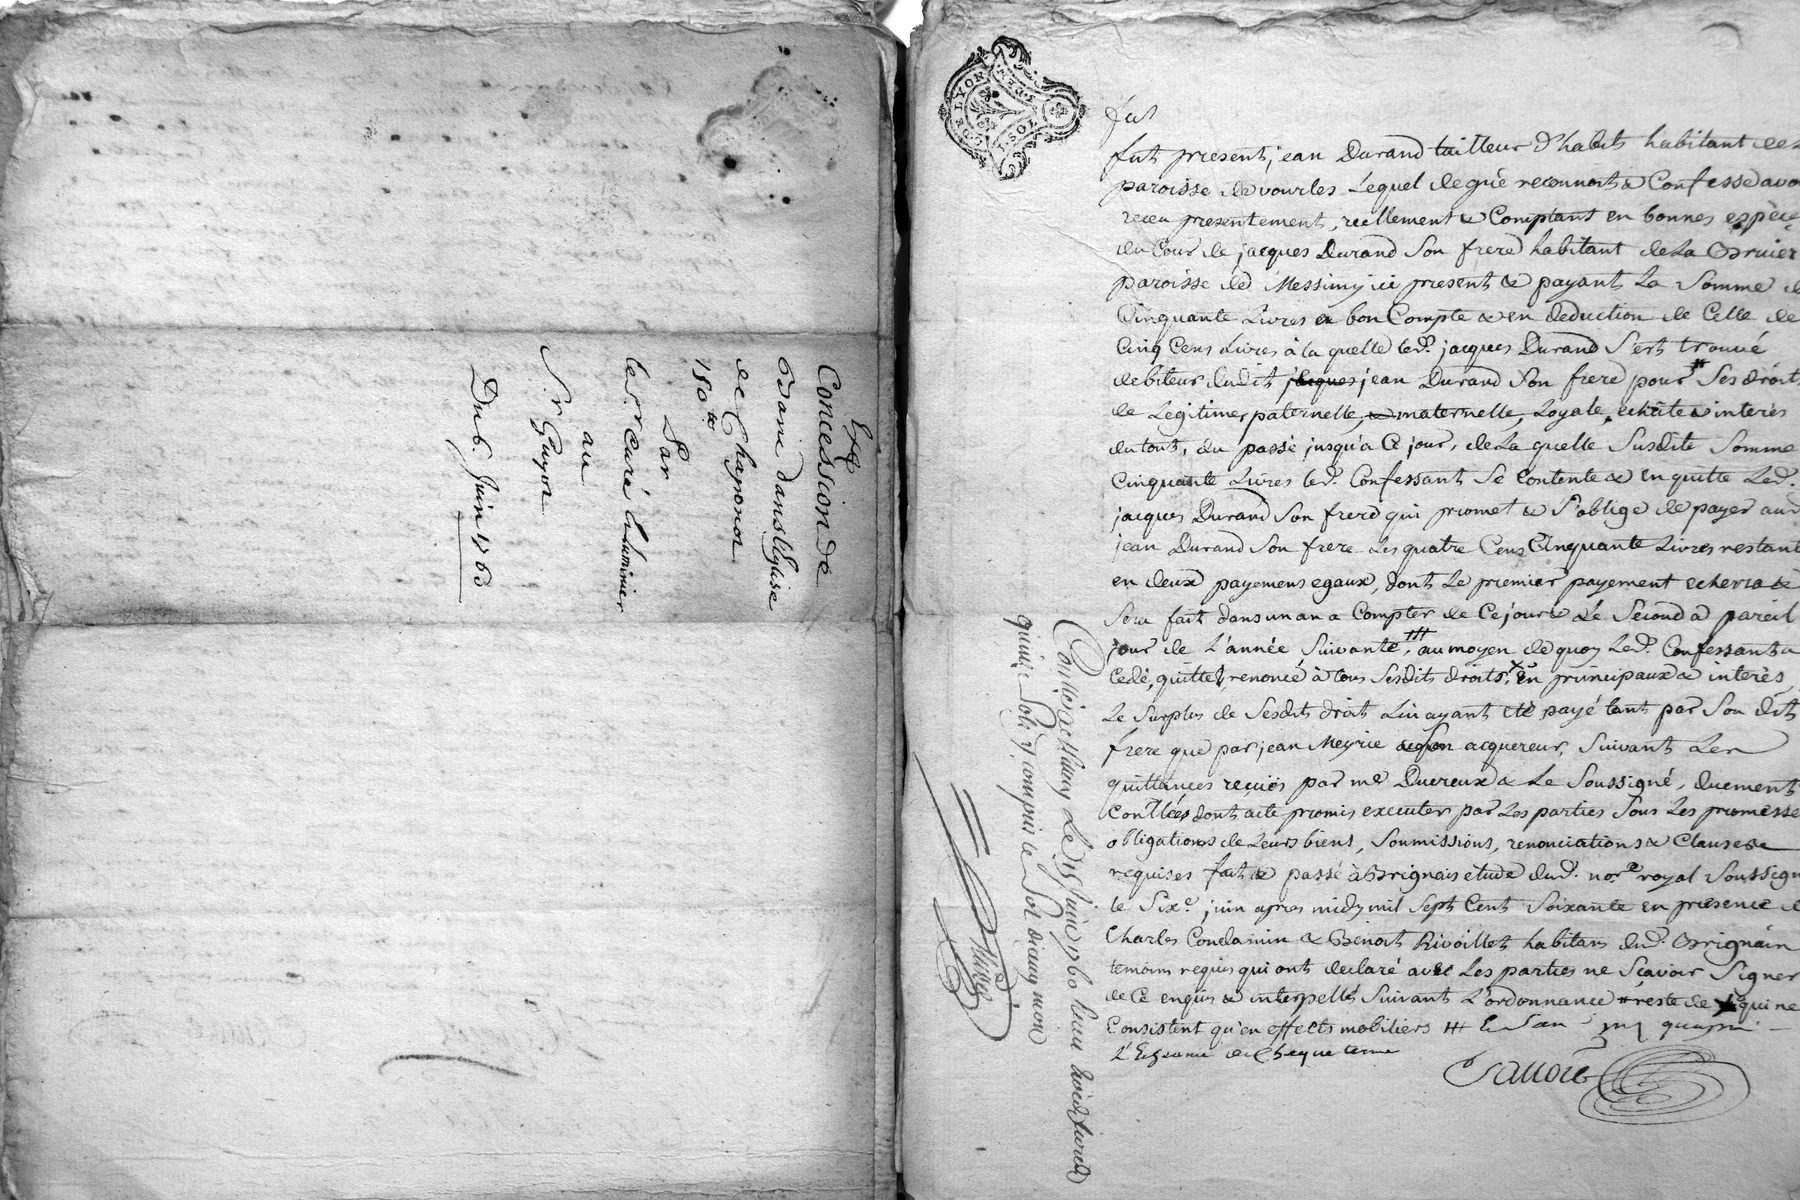 Exp.
Concession de
Banc dans l'Eglise
de Chaponot
150tt
Par
le Sr Curé Luminier
au
Sr Guyot
Du 6. Juin 1760
G. DE LYON
1. SOL
fut
fut present, jean Durand tailleur d'habits habitant de
paroisse de vourles Lequel de gré reconnoit & Confesse avo
receu presentement, reellement & Comptant en bonnes espèce
du Cour de jacques Durand Son frere habitant de La
paroisse de Messimy ici present & payant La Somme d
Cinquante Livres a bon Compte & en deduction de Celle de
Cinq Cens Livres à la quelle led. jacques Durand S'est trouvé
debiteur dudit jacques jean Durand Son frere pour # Ses droit
de Legitimes paternelle, & maternelle, Loyale, echûte & interés
du tout, du passé jusqu'a Ce jour, de La quelle Susdite Somme
Cinquante Livres led. Confessant Se Contente & en quitte Led.
jacques Durand Son frere qui promet & S'oblige de payer aud
jean Durand Son frere Les quatre Cens Cinquante Livres restant
en deux payemens egaux, dont Le premier payement echerra &
Sera fait dans un an a Compter de Ce jour & Le Second a pareil
jour de L'année Suivante, ### au moyen de quoy Led. Confessant a
Cedé, quitté, renoncé à tous Sesdits droits, x en principaux & interés
Le Surplus de Sesdits droit Lui ayant été payé tant par Son dit
frere que par jean Meyrie acquereur, Suivant Les
quittances reçües par me Ducreux & Le Soussigné, duement
Conllées dont acte promis executer par Les parties Sous Les promesse
obligations de Leurs biens, Soumissions, renonciations & Clauses
requises fait & passé à Brignais etude dud. nore royal Soussign
le Sixe juin apres midy mil Sept Cent Soixante en presence d
Charles Condamin & Benoit Rivoillet habitans dud. Brignais
temoins requis qui ont declaré avec Les parties ne Scavoir Signer
de Ce enquis & interpellés Suivant L'ordonnance # reste de x qui ne
Consistent qu'en effects mobiliers ###
de Chaque terme
Controllé a le 15 juin 1760 receu
quinze Sols y compris le Sol